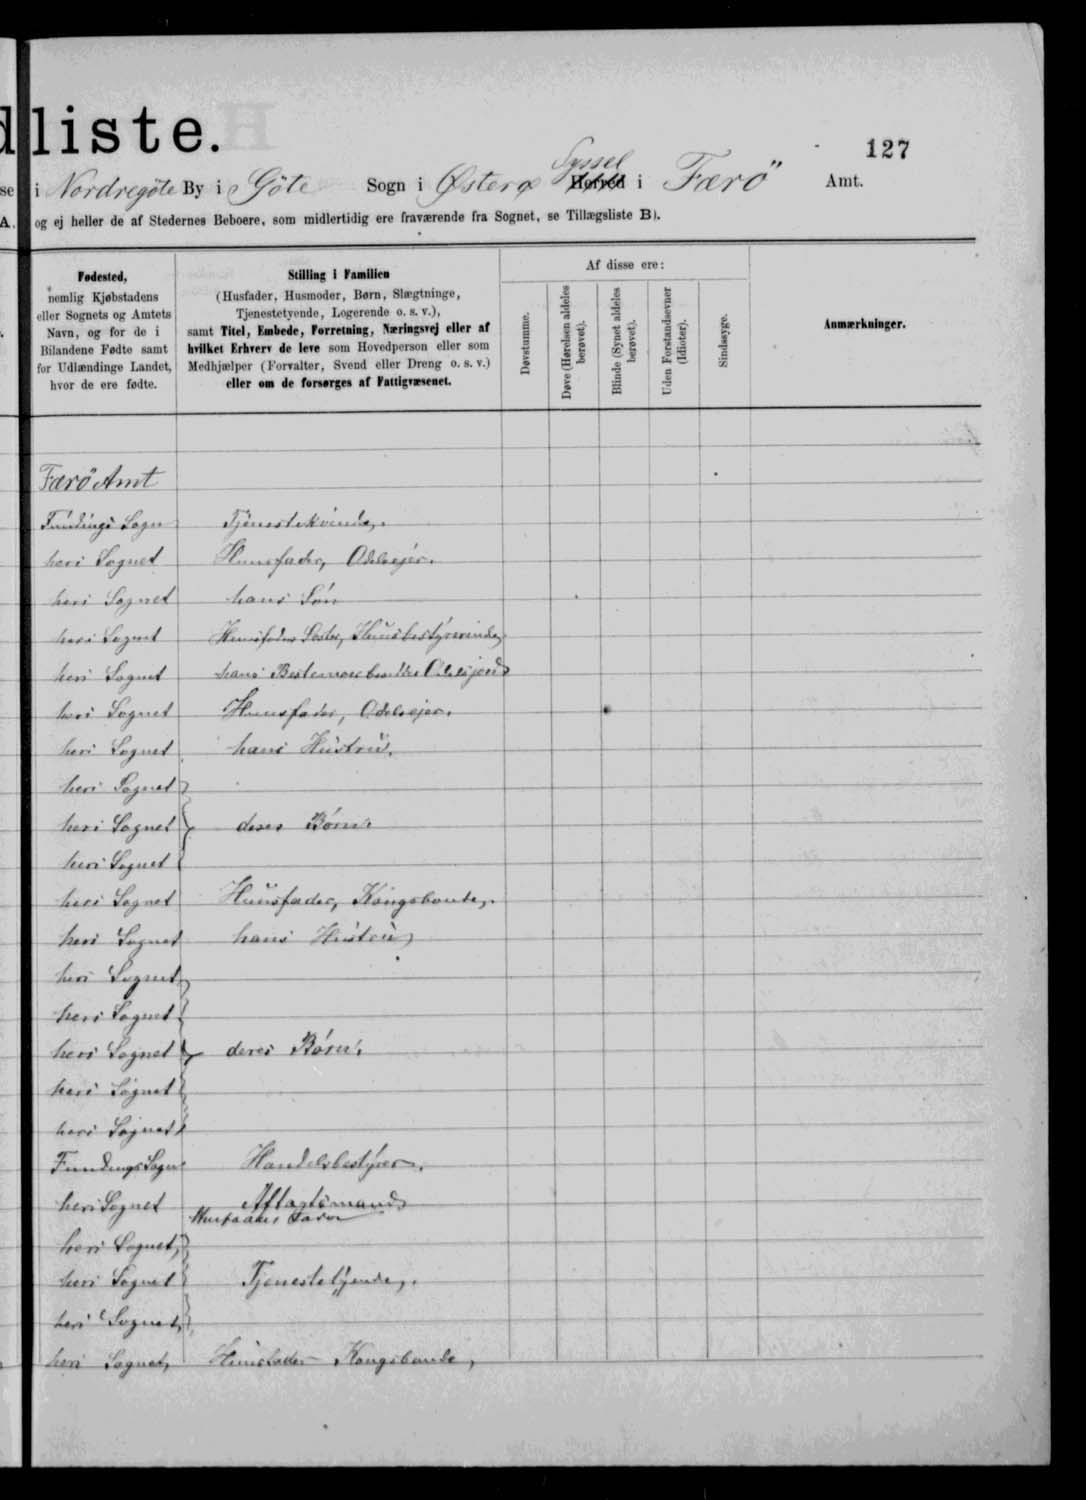 dliste.
127
se i Nordregöte By i Göte Sogn i Østerø Syssel Herred i Færö Amt.
A. og ej heller de af Stedernes Beboere, som midlertidig ere fraværende fra Sognet, se Tillægsliste B).
Fødested,
nemlig Kjøbstadens
eller Sognets og Amtets
Navn, og for de i
Bilandene Fødte samt
for Udlændinge Landet,
hvor de ere fødte.
Stilling i Familien
(Husfader, Husmoder, Børn, Slægtninge,
Tjenestetyende, Logerende o. s. v.),
samt Titel, Embede, Forretning, Næringsvej eller af
hvilket Erhverv de leve som Hovedperson eller som
Medhjælper (Forvalter, Svend eller Dreng o. s. v.)
eller om de forsørges af Fattigvæsenet.
Af disse ere:
Døvstumme.
Døve (Hørelsen aldeles
berøvet).
Blinde (Synet aldeles
berøvet).
Uden Forstandsevner
(Idioter).
Sindssyge.
Anmærkninger.
Færö Amt
Fundings Sogn Tjenestekvinde,
heri Sognet Huusfader, Odelsejer.
heri Sognet hans Søn
heri Sognet Huusfaders Søster, Huusbestyrerinde,
heri Sognet hans Odelsjord
heri Sognet Huusfader, Odelsejer.
heri Sognet hans Hustru.
heri Sognet
heri Sognet deres Børn.
heri Sognet
heri Sognet Huusfader, Kongsbonde,
heri Sognet hans Hustru
heri Sognet
heri Sognet
heri Sognet deres Børn.
heri Sognet
heri Sognet
Fundings Sogn Handelsbestyrer.
heri Sognet Aftægtsmand
heri Sognet,
heri Sognet Tjenestetyende,
heri Sognet,
heri Sognet, Huusfader Kongsbonde,